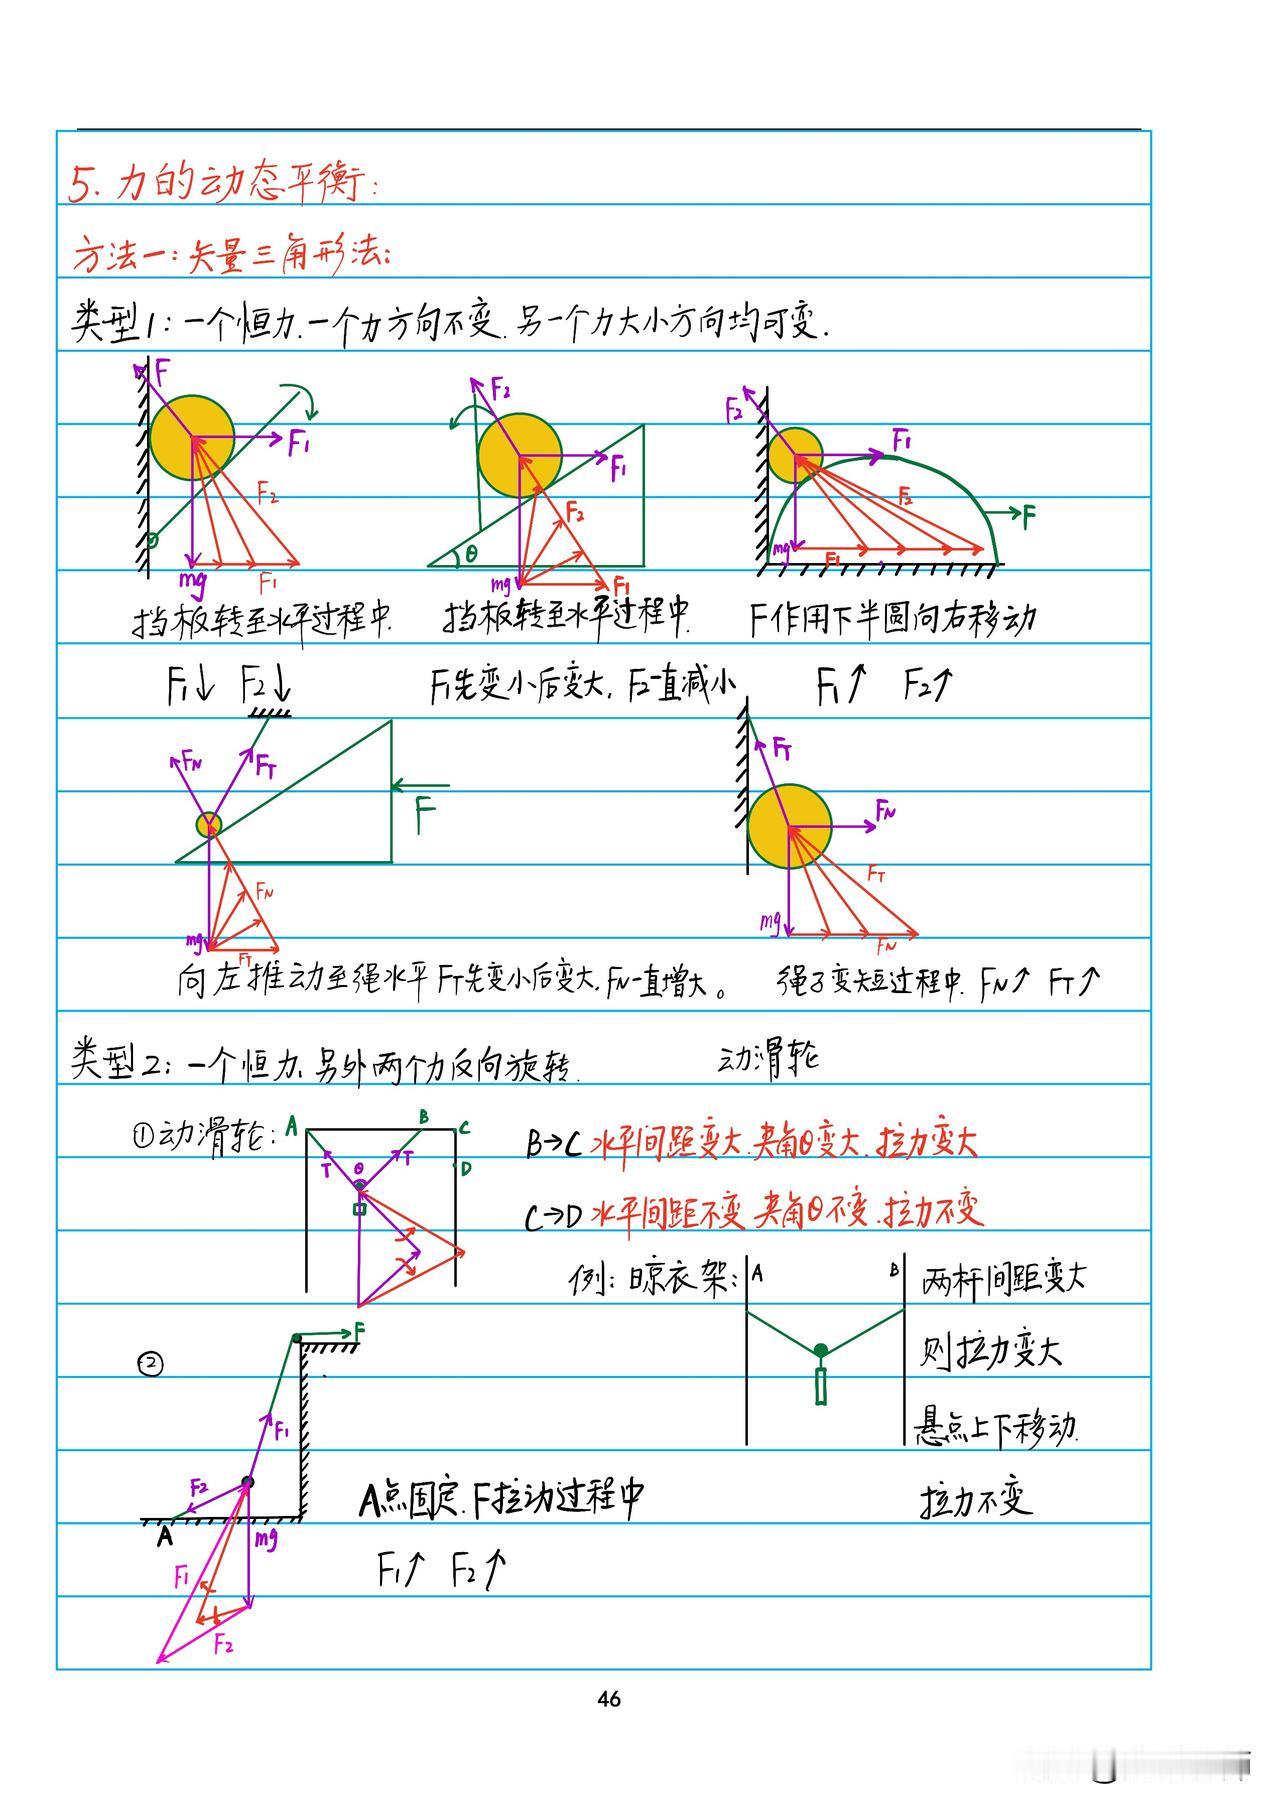 5. 力的动态平衡:
方法一: 矢量三角形法:
类型1: 一个恒力、一个力方向不变、另一个力大小方向均可变.
F F1 F2 mg F1
F2 F1 F2 θ mg F1
F2 F1 F2 F mg F1
挡板转至水平过程中. 挡板转至水平过程中. F作用下半圆向右移动
F1↓ F2↓ F1先变小后变大, F2一直减小 F1↑ F2↑
FN FT F FN mg FT
FT FN FT mg FN
向左推动至绳水平 FT先变小后变大, FN一直增大。 绳子变短过程中. FN↑ FT↑
类型2: 一个恒力、另外两个力反向旋转. 动滑轮
①动滑轮: A B C D T θ T
B→C 水平间距变大. 夹角θ变大. 拉力变大
C→D 水平间距不变 夹角θ不变. 拉力不变
例: 晾衣架: A B 两杆间距变大
则拉力变大
悬点上下移动.
拉力不变
② F F1 F2 A mg F1 F2
A点固定. F拉动过程中
F1↑ F2↑
46